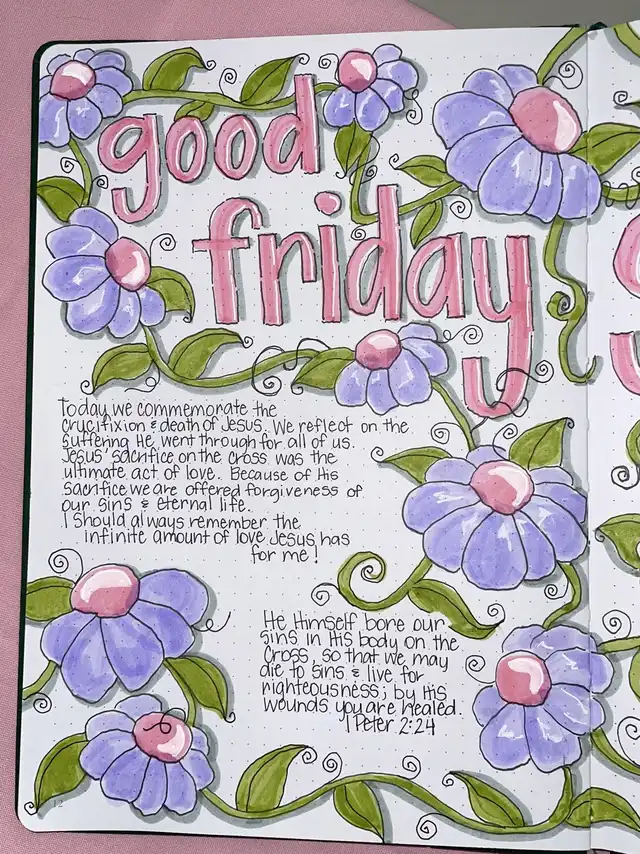 good
friday
Today we commemorate the
crucifixion & death of Jesus. We reflect on the
suffering He went through for all of us.
Jesus' sacrifice on the cross was the
ultimate act of love. Because of His
sacrifice we are offered forgiveness of
our sins & eternal life.
I should always remember the
infinite amount of love Jesus has
for me!
He Himself bore our
sins in His body on the
Cross, so that we may
die to sins & live for
righteousness; by His
wounds you are healed.
1 Peter 2:24
12